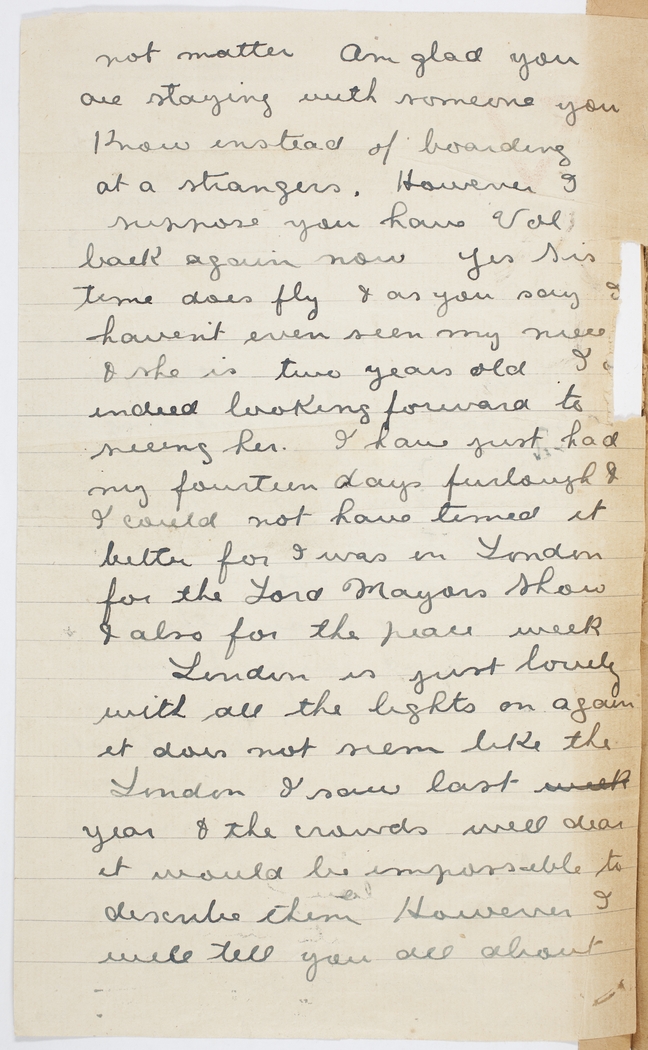 not matter Am glad you
are staying with someone you
Know instead of boarding
at a strangers. However I
suppose you have Val
back again now Yes Sis
time does fly & as you say I
haven't even seen my niece
& she is two years old I
indeed looking forward to
seeing her. I have just had
my fourteen days furlough &
I could not have timed it
better for I was in London
for the Lord Mayors Show
& also for the peace week
London is just lovely
with all the lights on again
it does not seem like the
London I saw last week
year & the crowds well dear
it would be impossible to
describe them However I
will tell you all about